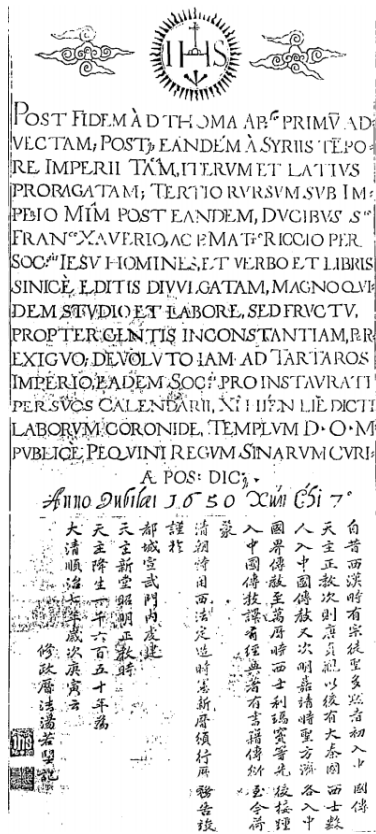 IHS
POST FIDEM À D THOMA AP. PRIMV̄ AD-
VECTAM; POSTQ; EANDEM À SYRIIS TĒPO-
RE IMPERII TÂM, ITERVM ET LATIVS
PROPAGATAM; TERTIO RVRSVM SVB IM-
PERIO MĪM POST EANDEM, DVCIBVS S.
FRAN.co XAVERIO, AC P. MAT.o RICCIO PER
SOC.tis IESV HOMINES, ET VERBO ET LIBRIS
SINICÈ EDITIS DIVVLGATAM, MAGNO QVI-
DEM STVDIO ET LABORE, SED FRVCTV,
PROPTER GENTIS INCONSTANTIAM, PER-
EXIGVO; DEVOLVTO IAM AD TARTAROS
IMPERIO, EADEM SOC. PRO INSTAVRATI
PER SVOS CALENDARII, XI HIEN LIĒ DICTI
LABORVM CORONIDE, TEMPLVM D·O·M
PVBLICE PEQVINI REGVM SINARVM CVRI-
Æ POS: DIC;q.
Anno Iubilæi 1650 Xun Chi 7°
自昔西漢時有宗徒聖多默者初入中國傳
天主正教次則唐貞觀以後有大秦國西士數
人入中國傳教又次明嘉靖時聖方濟各入中
國界傳教至萬曆時西士利瑪竇等先後接踵
入中國傳教譯有經典著有書籍傳衍至今荷
蒙
清朝特用西法定造時憲新曆頒行曆務告竣
謹於
都城宣武門內虔建
天主新堂昭明正教時
天主降生一千六百五十年為
大清順治七年歲次庚寅云
修政曆法湯若望記